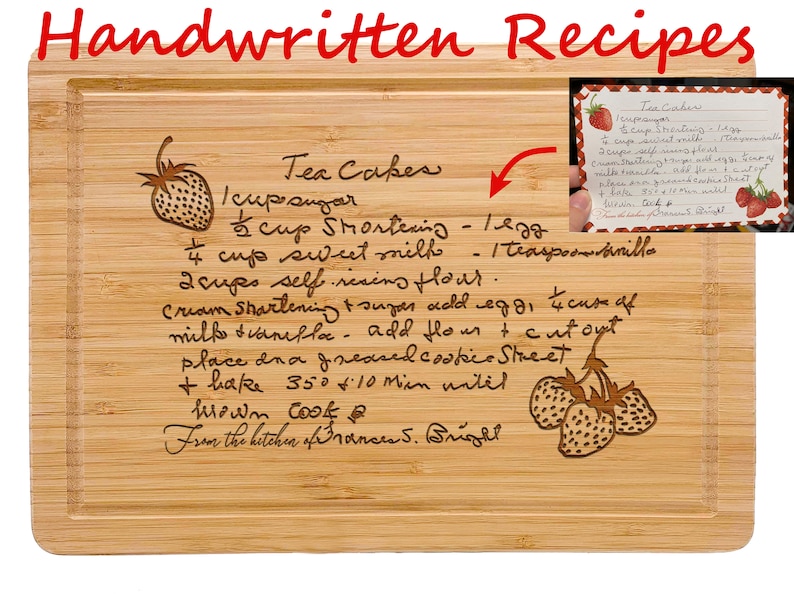 Handwritten Recipes
Tea Cakes
1 cup sugar
½ cup Shortening - 1 egg
¼ cup sweet milk - 1 teaspoon vanilla
2 cups self-rising flour
Cream Shortening + sugar add egg, ¼ cup of
milk + vanilla - add flour + cut out
place on a greased cookie Street
+ bake 350 + 10 Min until
brown Cook
From the kitchen of Frances S. Bright
Tea Cakes
1 cup sugar
½ cup Shortening - 1 egg
¼ cup sweet milk - 1 teaspoon vanilla
2 cups self rising flour
Cream Shortening + sugar add egg, ¼ cup of
milk + vanilla - add flour + cut out
place on a greased cookie Street
+ bake 350 + 10 Min until
brown Cook
From the kitchen of Frances S. Bright